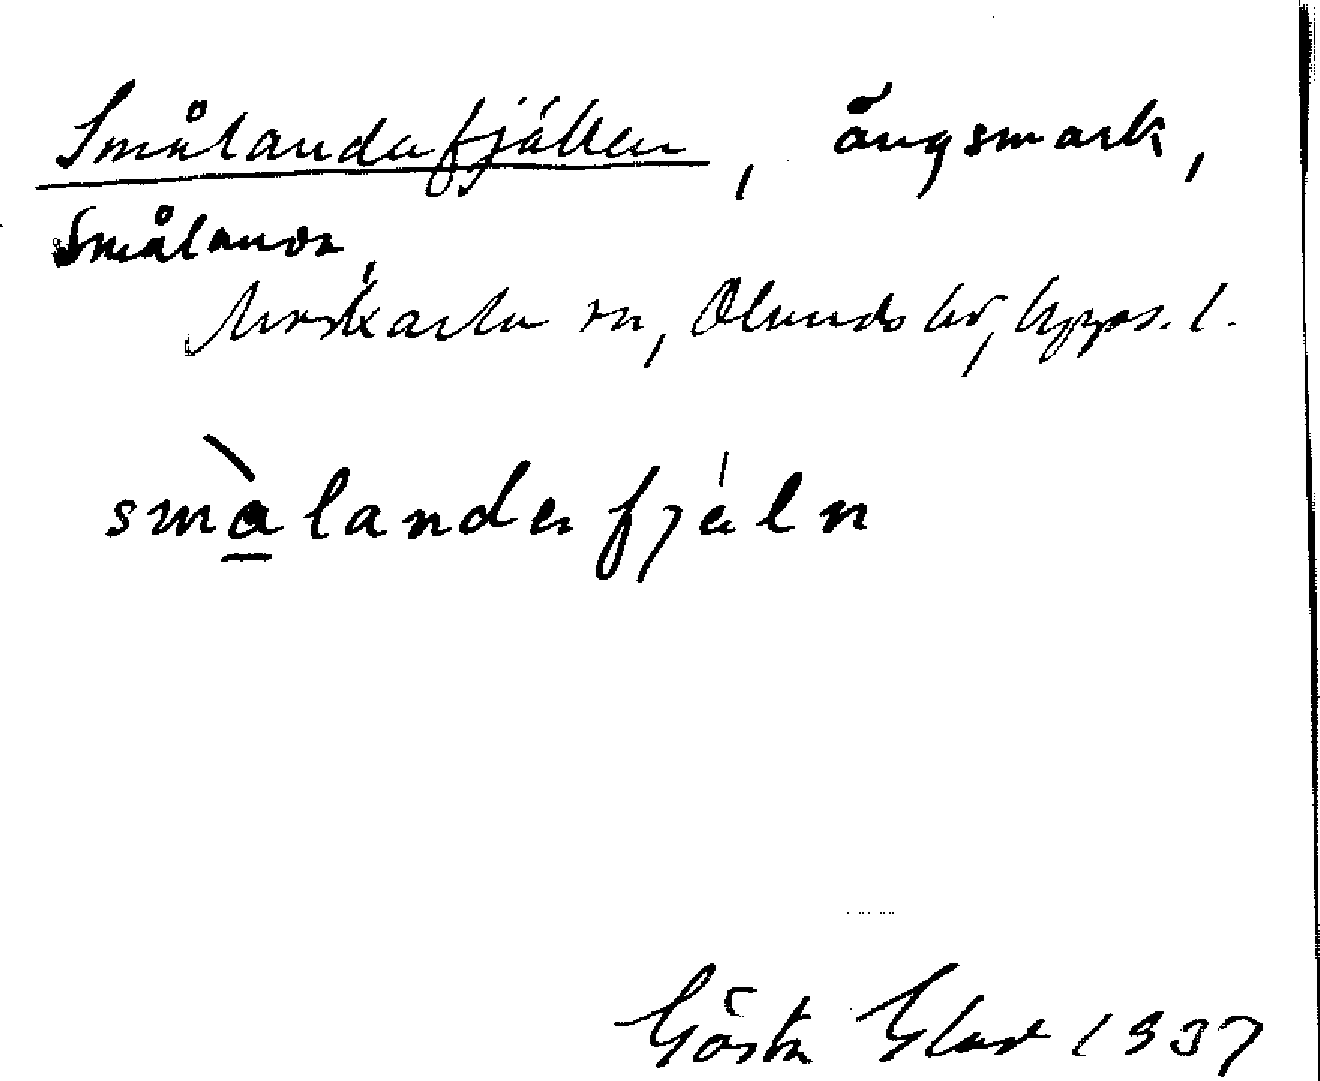 Smålandafjällen, ängsmark,
Småland,
Morkarla sn, Olands hd, Upps. l.
smàlandafjäln
Gösta Glad 1937